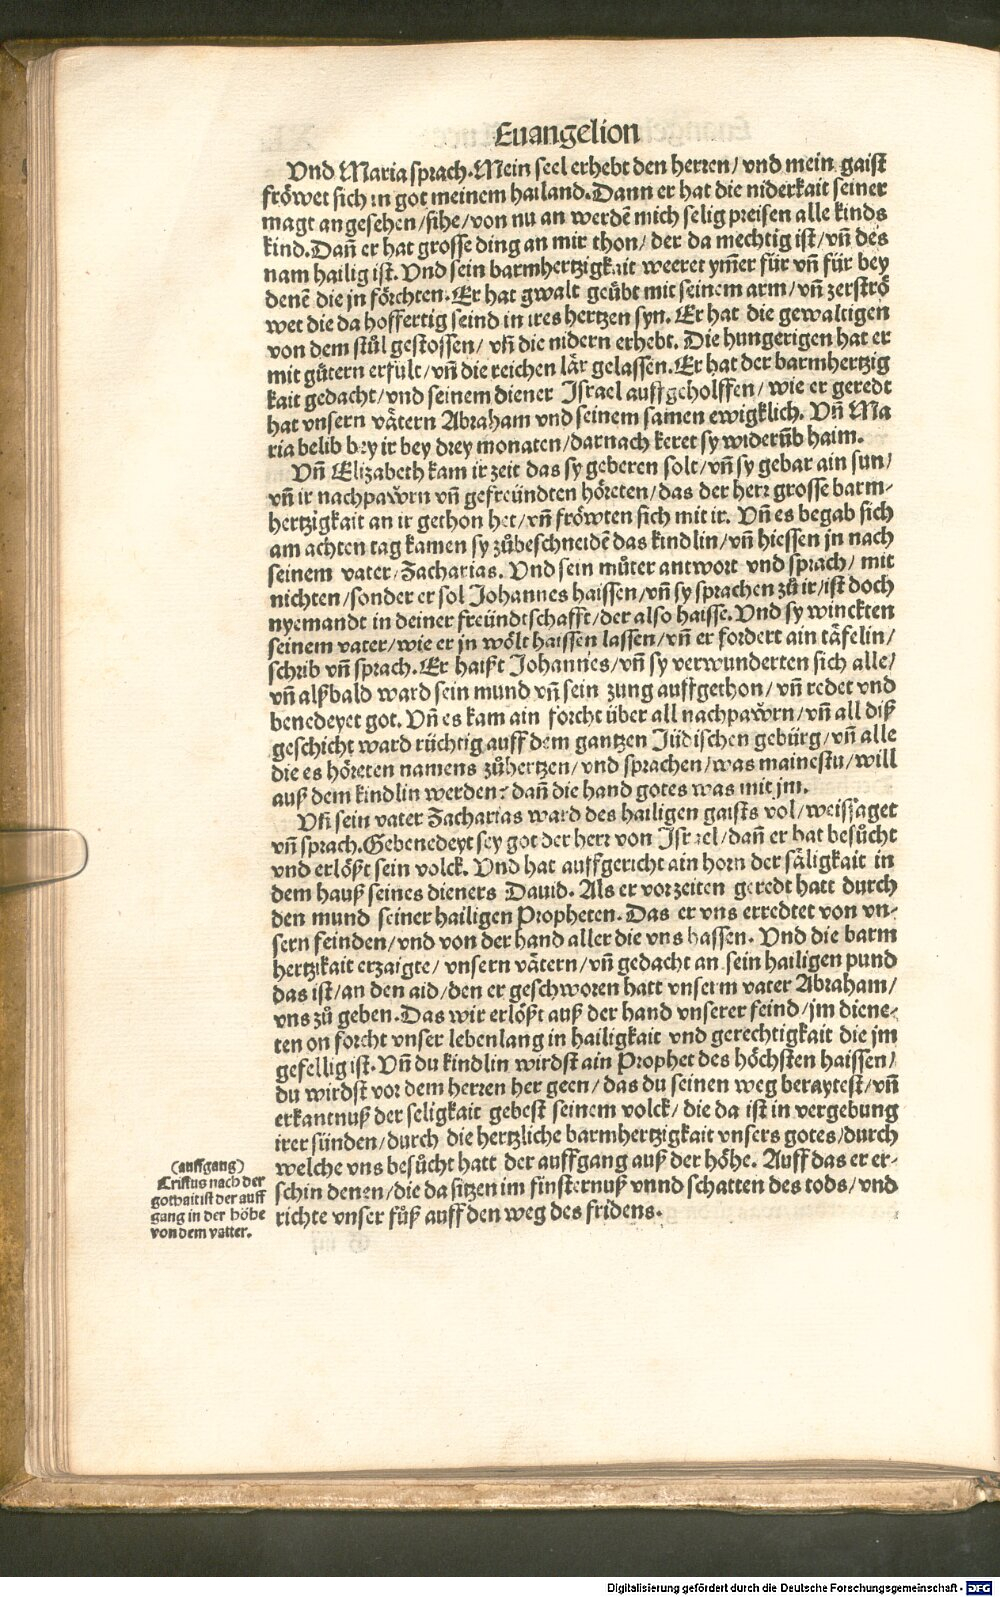 Euangelion
Vnd Maria sprach. Mein seel erhebt den herren/ vnd mein gaist
fröwet sich in got meinem hailand. Dann er hat die niderkait seiner
magt angesehen/ sihe/ von nu an werdē mich selig preisen alle kinds
kind. Dañ er hat grosse ding an mir thon/ der da mechtig ist/ vñ des
nam hailig ist. Vnd sein barmhertzigkait weeret ym̃er für vñ für bey
denē die jn förchten. Er hat gwalt geübt mit seinem arm/ vñ zerströ
wet die da hoffertig seind in ires hertzen syn. Er hat die gewaltigen
von dem stůl gestossen/ vñ die nidern erhebt. Die hungerigen hat er
mit gůtern erfült/ vñ die reichen lär gelassen. Er hat der barmhertzig
kait gedacht/ vnd seinem diener Israel auffgeholffen/ wie er geredt
hat vnsern vätern Abraham vnd seinem samen ewigklich. Vñ Ma
ria belib bey ir bey drey monaten/ darnach keret sy widerũb haim.
Vñ Elizabeth kam ir zeit das sy geberen solt/ vñ sy gebar ain sun/
vñ ir nachpawrn vñ gefreündten höreten/ das der herr grosse barm-
hertzigkait an ir gethon het/ vñ fröwten sich mit ir. Vñ es begab sich
am achten tag kamen sy zůbeschneidē das kindlin/ vñ hiessen jn nach
seinem vater/ Zacharias. Vnd sein můter antwort vnd sprach/ mit
nichten/ sonder er sol Johannes haissen/ vñ sy sprachen zů ir/ ist doch
nyemandt in deiner freündtschafft/ der also haisse. Vnd sy winckten
seinem vater/ wie er jn wölt haissen lassen/ vñ er fordert ain täfelin/
schrib vñ sprach. Er haißt Johannes/ vñ sy verwunderten sich alle/
vñ alßbald ward sein mund vñ sein zung auffgethon/ vñ redet vnd
benedeyet got. Vñ es kam ain forcht über all nachpawrn/ vñ all diß
geschicht ward rüchtig auff dem gantzen Jüdischen gebürg/ vñ alle
die es höreten namens zůhertzen/ vnd sprachen/ was mainestu/ will
auß dem kindlin werden? dañ die hand gotes was mit jm.
Vñ sein vater Zacharias ward des hailigen gaists vol/ weissaget
vñ sprach. Gebenedeyt sey got der herr von Israel/ dañ er hat besůcht
vnd erlößt sein volck. Vnd hat auffgericht ain horn der säligkait in
dem hauß seines dieners Dauid. Als er vorzeiten geredt hatt durch
den mund seiner hailigen Propheten. Das er vns erredtet von vn-
sern feinden/ vnd von der hand aller die vns hassen. Vnd die barm
hertzikait erzaigte/ vnsern vätern/ vñ gedacht an sein hailigen pund
das ist/ an den aid/ den er geschworen hatt vnserm vater Abraham/
vns zů geben. Das wir erlößt auß der hand vnserer feind/ jm diene-
ten on forcht vnser lebenlang in hailigkait vnd gerechtigkait die jm
gefellig ist. Vñ du kindlin wirdst ain Prophet des höchsten haissen/
du wirdst vor dem herren her geen/ das du seinen weg beraytest/ vñ
erkantnuß der seligkait gebest seinem volck/ die da ist in vergebung
irer sünden/ durch die hertzliche barmhertzigkait vnsers gotes/ durch
welche vns besůcht hatt der auffgang auß der höhe. Auff das er er-
schin denen/ die da sitzen im finsternuß vnnd schatten des tods/ vnd
richte vnser fůß auff den weg des fridens.
(auffgang)
Cristus nach der
gothait ist der auff
gang in der höhe
von dem vatter.
Digitalisierung gefördert durch die Deutsche Forschungsgemeinschaft - DFG